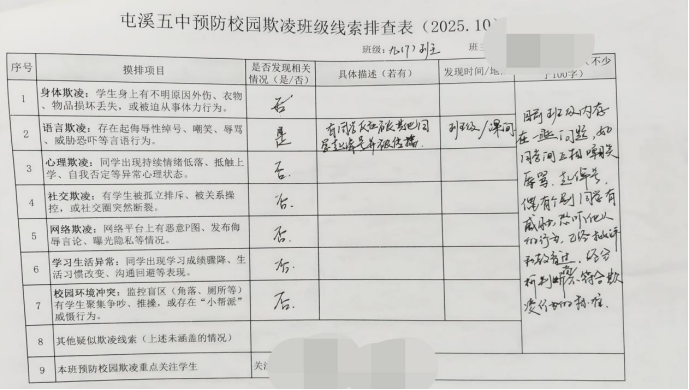 屯溪五中预防校园欺凌班级线索排查表（2025.10
班级：九(7)
序号 摸排项目 是否发现相关情况（是/否） 具体描述（若有） 发现时间/地
不少
于100字）
1 身体欺凌：学生身上有不明原因外伤、衣物、物品损坏丢失，或被迫从事体力行为。 否
2 语言欺凌：存在起侮辱性绰号、嘲笑、辱骂、威胁恐吓等言语行为。 是 班级/课间
3 心理欺凌：同学出现持续情绪低落、抵触上学、自我否定等异常心理状态。 否.
4 社交欺凌：有学生被孤立排斥、被关系操控，或社交圈突然断裂。 否.
5 网络欺凌：网络平台上有恶意P图、发布侮辱言论、曝光隐私等情况。 否.
6 学习生活异常：同学出现学习成绩骤降、生活习惯改变、沟通回避等表现。 否.
7 校园环境冲突：监控盲区（角落、厕所等）有学生聚集争吵、推搡，或存在“小帮派”威慑行为。 否.
8 其他疑似欺凌线索（上述未涵盖的情况）
9 本班预防校园欺凌重点关注学生 关注
目前班级内存
在一些问题，如
同学间互相嘲笑
辱骂、起绰号，
偶有个别同学有
威胁、恐吓他人
的行为，已经批评
和教育过，
不符合欺
凌行为的标准.